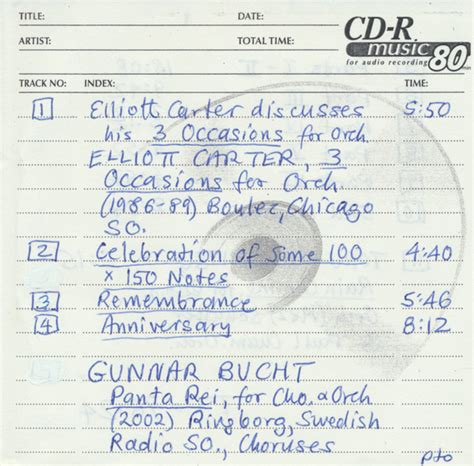 TITLE: DATE:
ARTIST: TOTAL TIME:
CD-R
music 80
for audio recording
TRACK NO: INDEX: TIME:
1 Elliott Carter discusses 5:50
his 3 Occasions for Orch.
ELLIOTT CARTER, 3
Occasions for Orch.
(1986-89) Boulez, Chicago
SO.
2 Celebration of Some 100 4:40
x 150 Notes
3 Remembrance 5:46
4 Anniversary 8:12
GUNNAR BUCHT
Panta Rei, for Cho. & Orch
(2002) Ringborg, Swedish
Radio SO., Choruses
pto